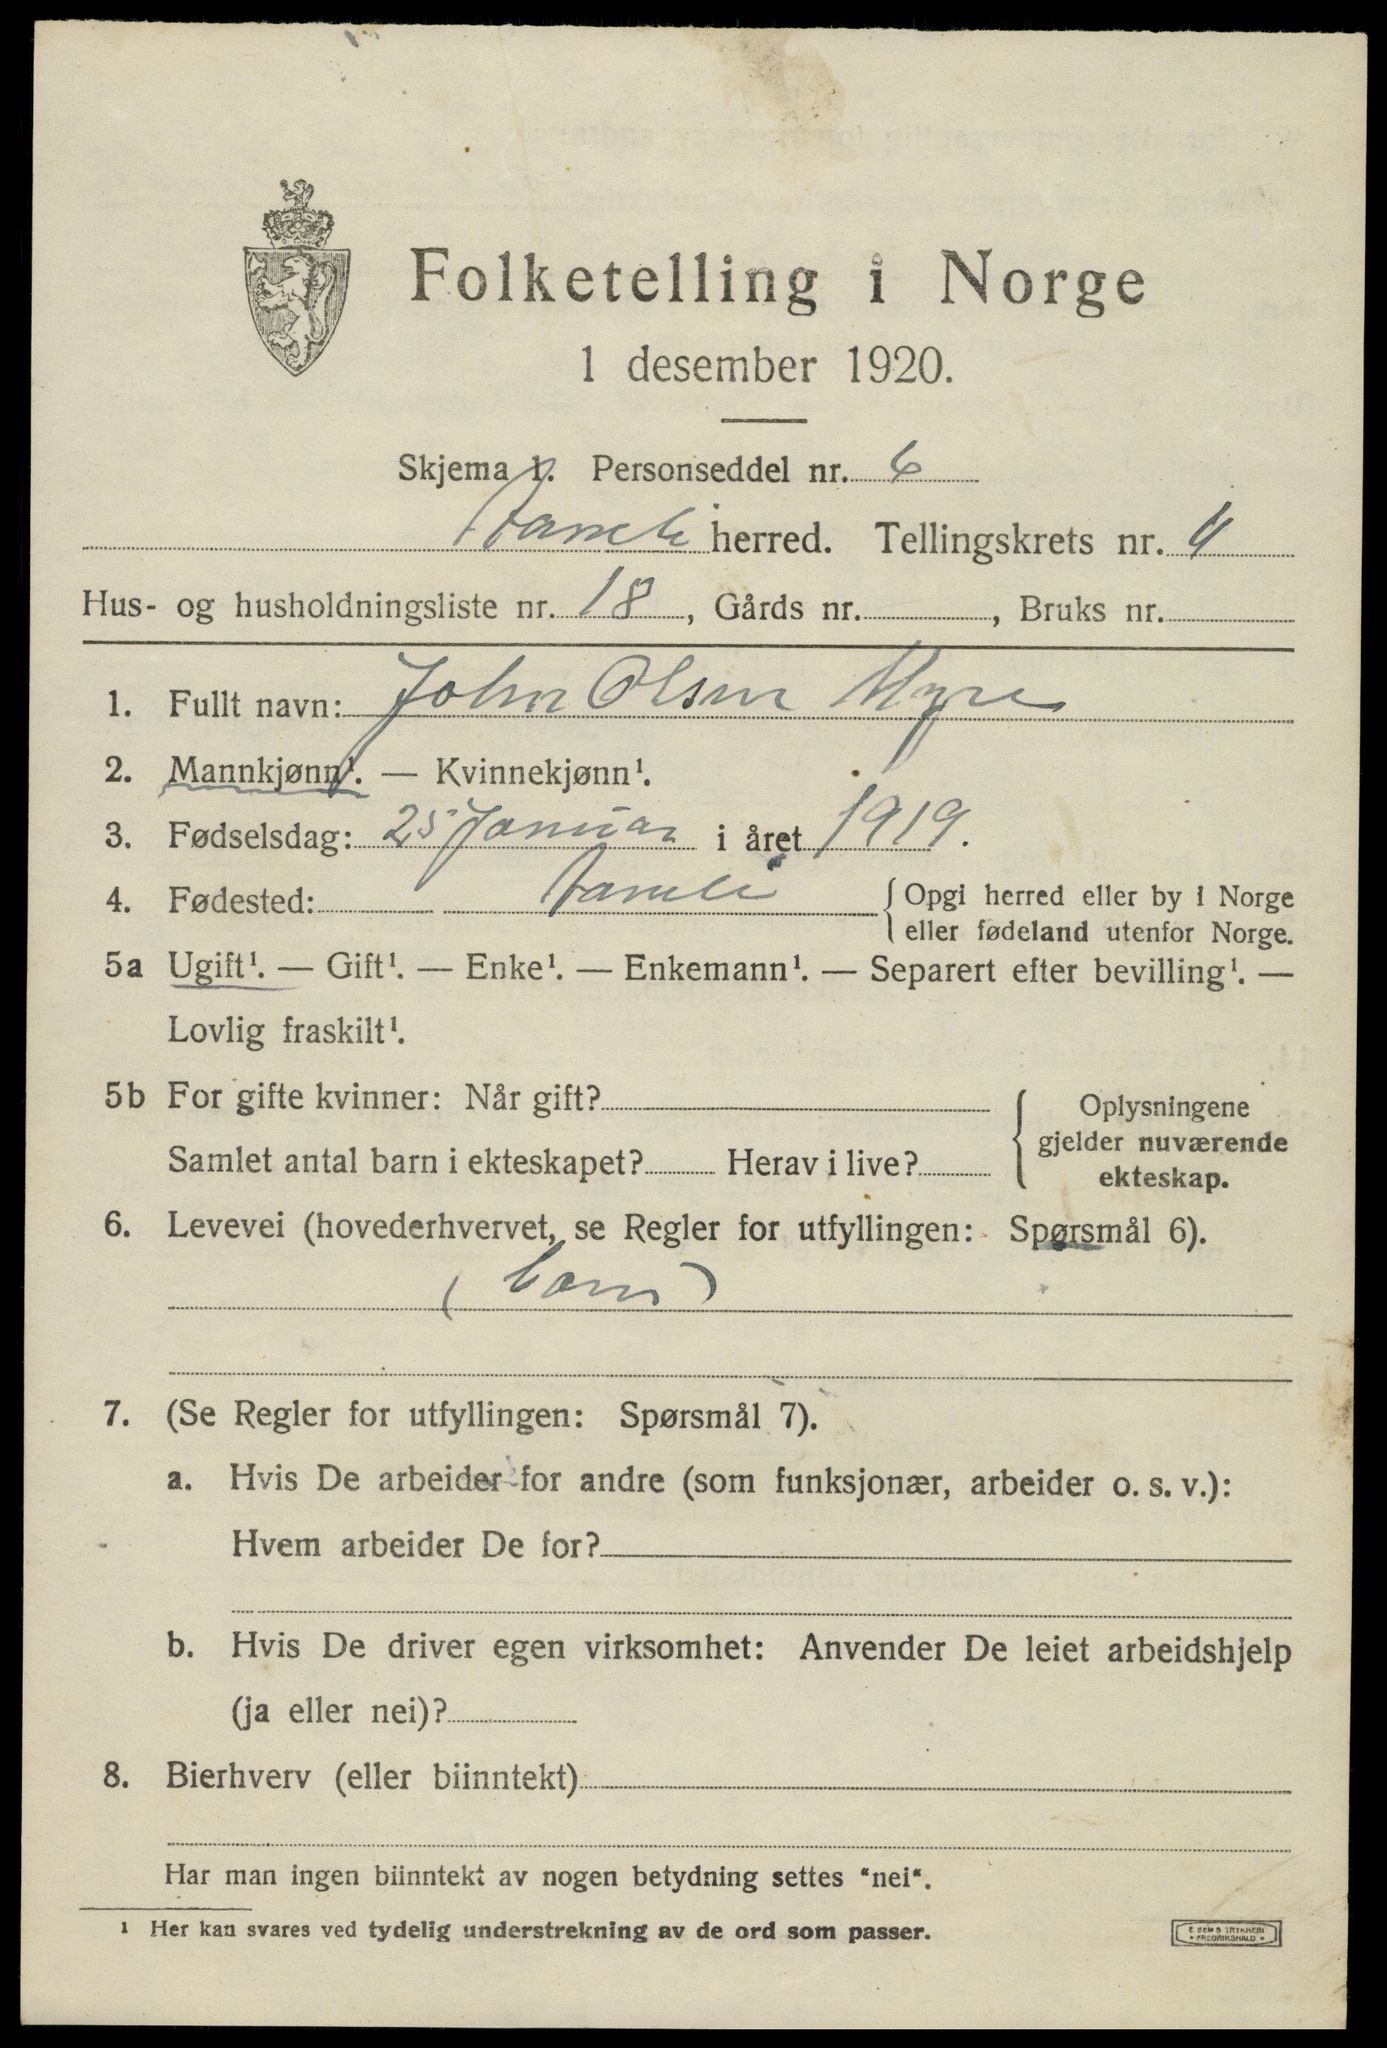 Folketelling i Norge
1 desember 1920.
Skjema 1. Personseddel nr. 6
herred. Tellingskrets nr. 4
Hus- og husholdningsliste nr. 18, Gårds nr. , Bruks nr.
1. Fullt navn: John Olsen Myre
2. Mannkjønn¹. — Kvinnekjønn¹.
3. Fødselsdag: 25 Januar i året 1919.
4. Fødested: { Opgi herred eller by i Norge
eller fødeland utenfor Norge.
5a Ugift¹. — Gift¹. — Enke¹. — Enkemann¹. — Separert efter bevilling¹. —
Lovlig fraskilt¹.
5b For gifte kvinner: Når gift?
Samlet antal barn i ekteskapet? Herav i live?
{ Oplysningene
gjelder nuværende
ekteskap.
6. Levevei (hovederhvervet, se Regler for utfyllingen: Spørsmål 6).
(barn)
7. (Se Regler for utfyllingen: Spørsmål 7).
a. Hvis De arbeider for andre (som funksjonær, arbeider o. s. v.):
Hvem arbeider De for?
b. Hvis De driver egen virksomhet: Anvender De leiet arbeidshjelp
(ja eller nei)?
8. Bierhverv (eller biinntekt)
Har man ingen biinntekt av nogen betydning settes "nei".
1 Her kan svares ved tydelig understrekning av de ord som passer.
E. SEMS TRYKKERI
* FREDRIKSHALD *